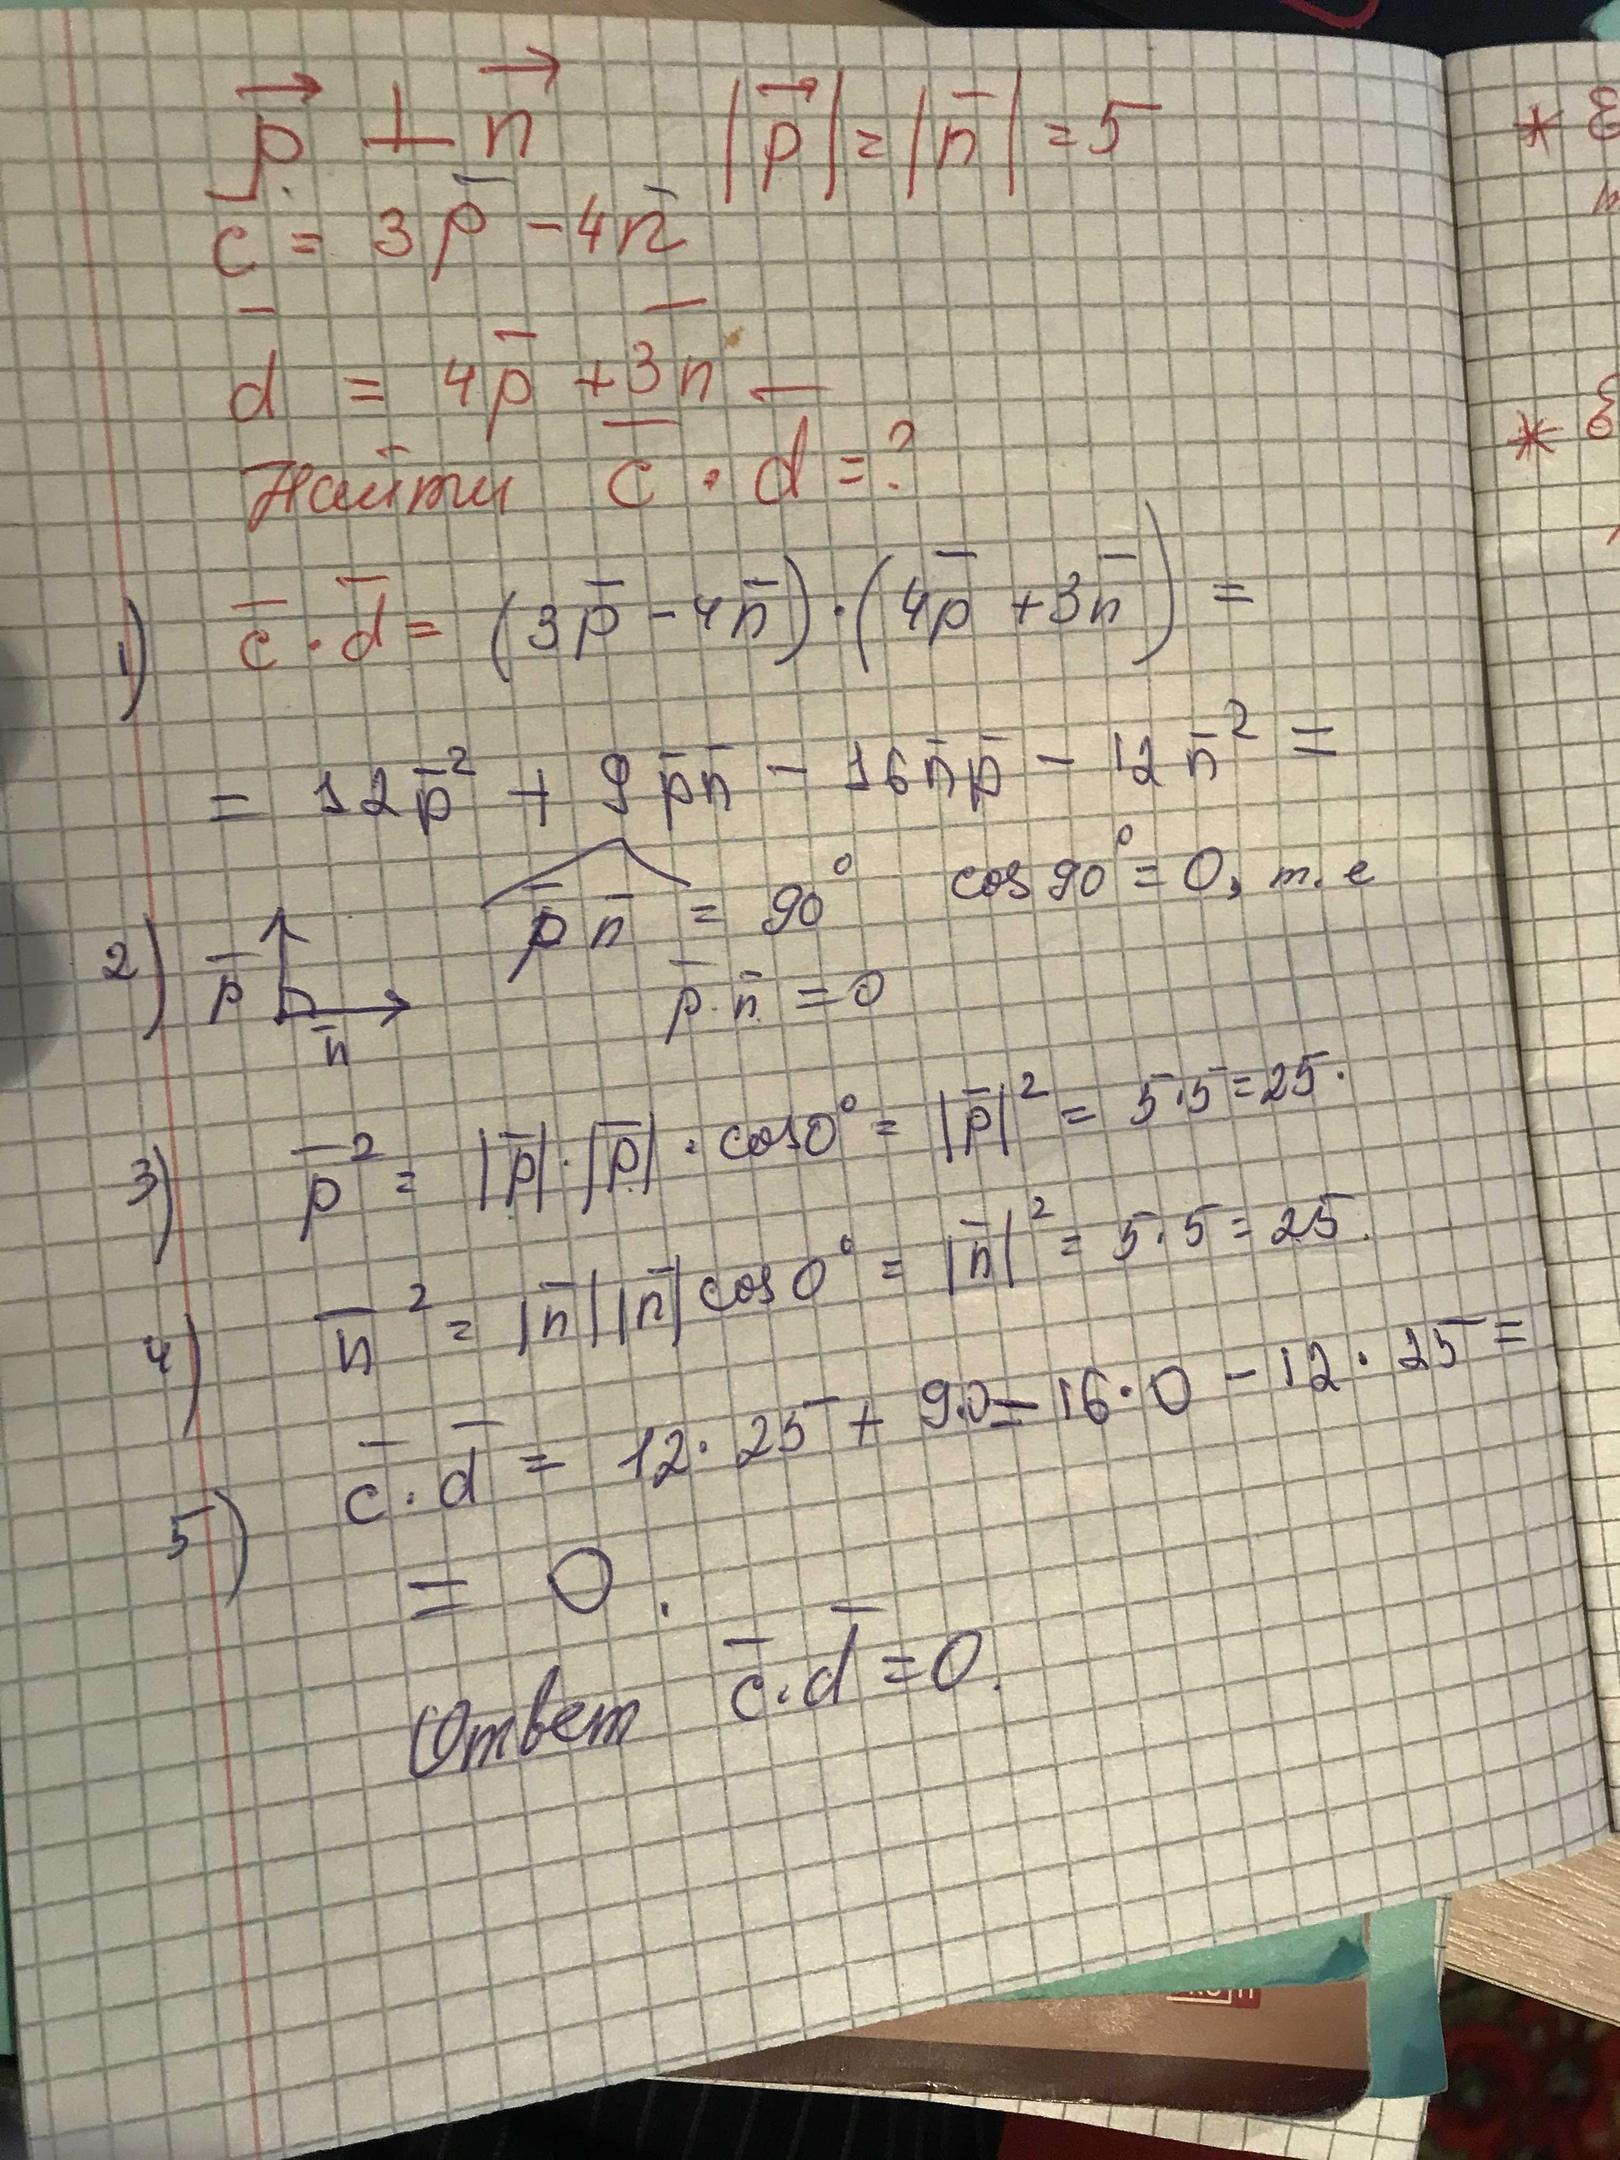 p⃗ ⊥ n⃗ |p⃗| = |n̄| = 5
c̄ = 3p̄ - 4n̄
d̄ = 4p̄ + 3n̄
Найти c̄ · d̄ = ?
1) c̄ · d̄ = (3p̄ - 4n̄) · (4p̄ + 3n̄) =
= 12p̄² + 9p̄n̄ - 16n̄p̄ - 12n̄² =
2) p̄ n̄ p̄ n̄ = 90° cos 90° = 0, т.е
p̄ · n̄ = 0
3) p̄² = |p̄| · |p̄| · cos 0° = |p̄|² = 5·5 = 25.
4) n̄² = |n̄| |n̄| cos 0° = |n̄|² = 5·5 = 25.
5) c̄ · d̄ = 12 · 25 + 9·0 - 16·0 - 12 · 25 =
= 0.
Ответ c̄ · d̄ = 0.